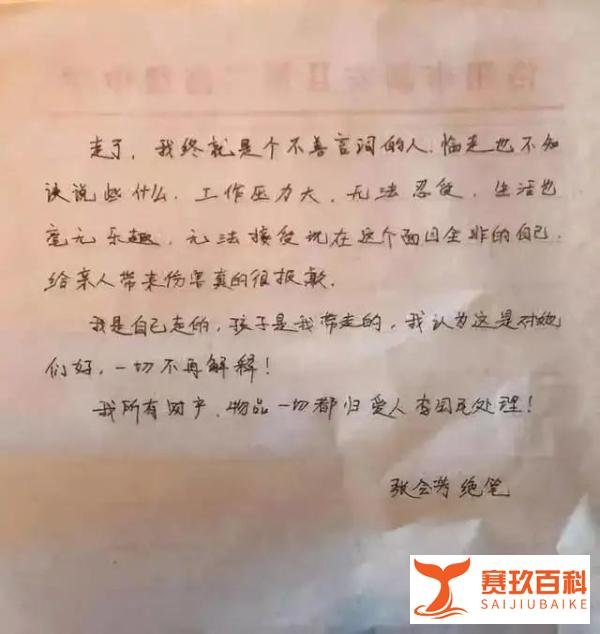 洛阳市新安县第二高级中学
走了，我终就是个不善言词的人，临走也不知
该说些什么。工作压力大，无法忍受，生活也
毫无乐趣，无法接受现在这个面目全非的自己.
给亲人带来伤害真的很抱歉.
我是自己走的，孩子是我带走的，我认为这是对她
们好，一切不再解释！
我所有财产、物品一切都归爱人李国民处理！
张会芳 绝笔
赛玖百科
SAIJIUBAIKE